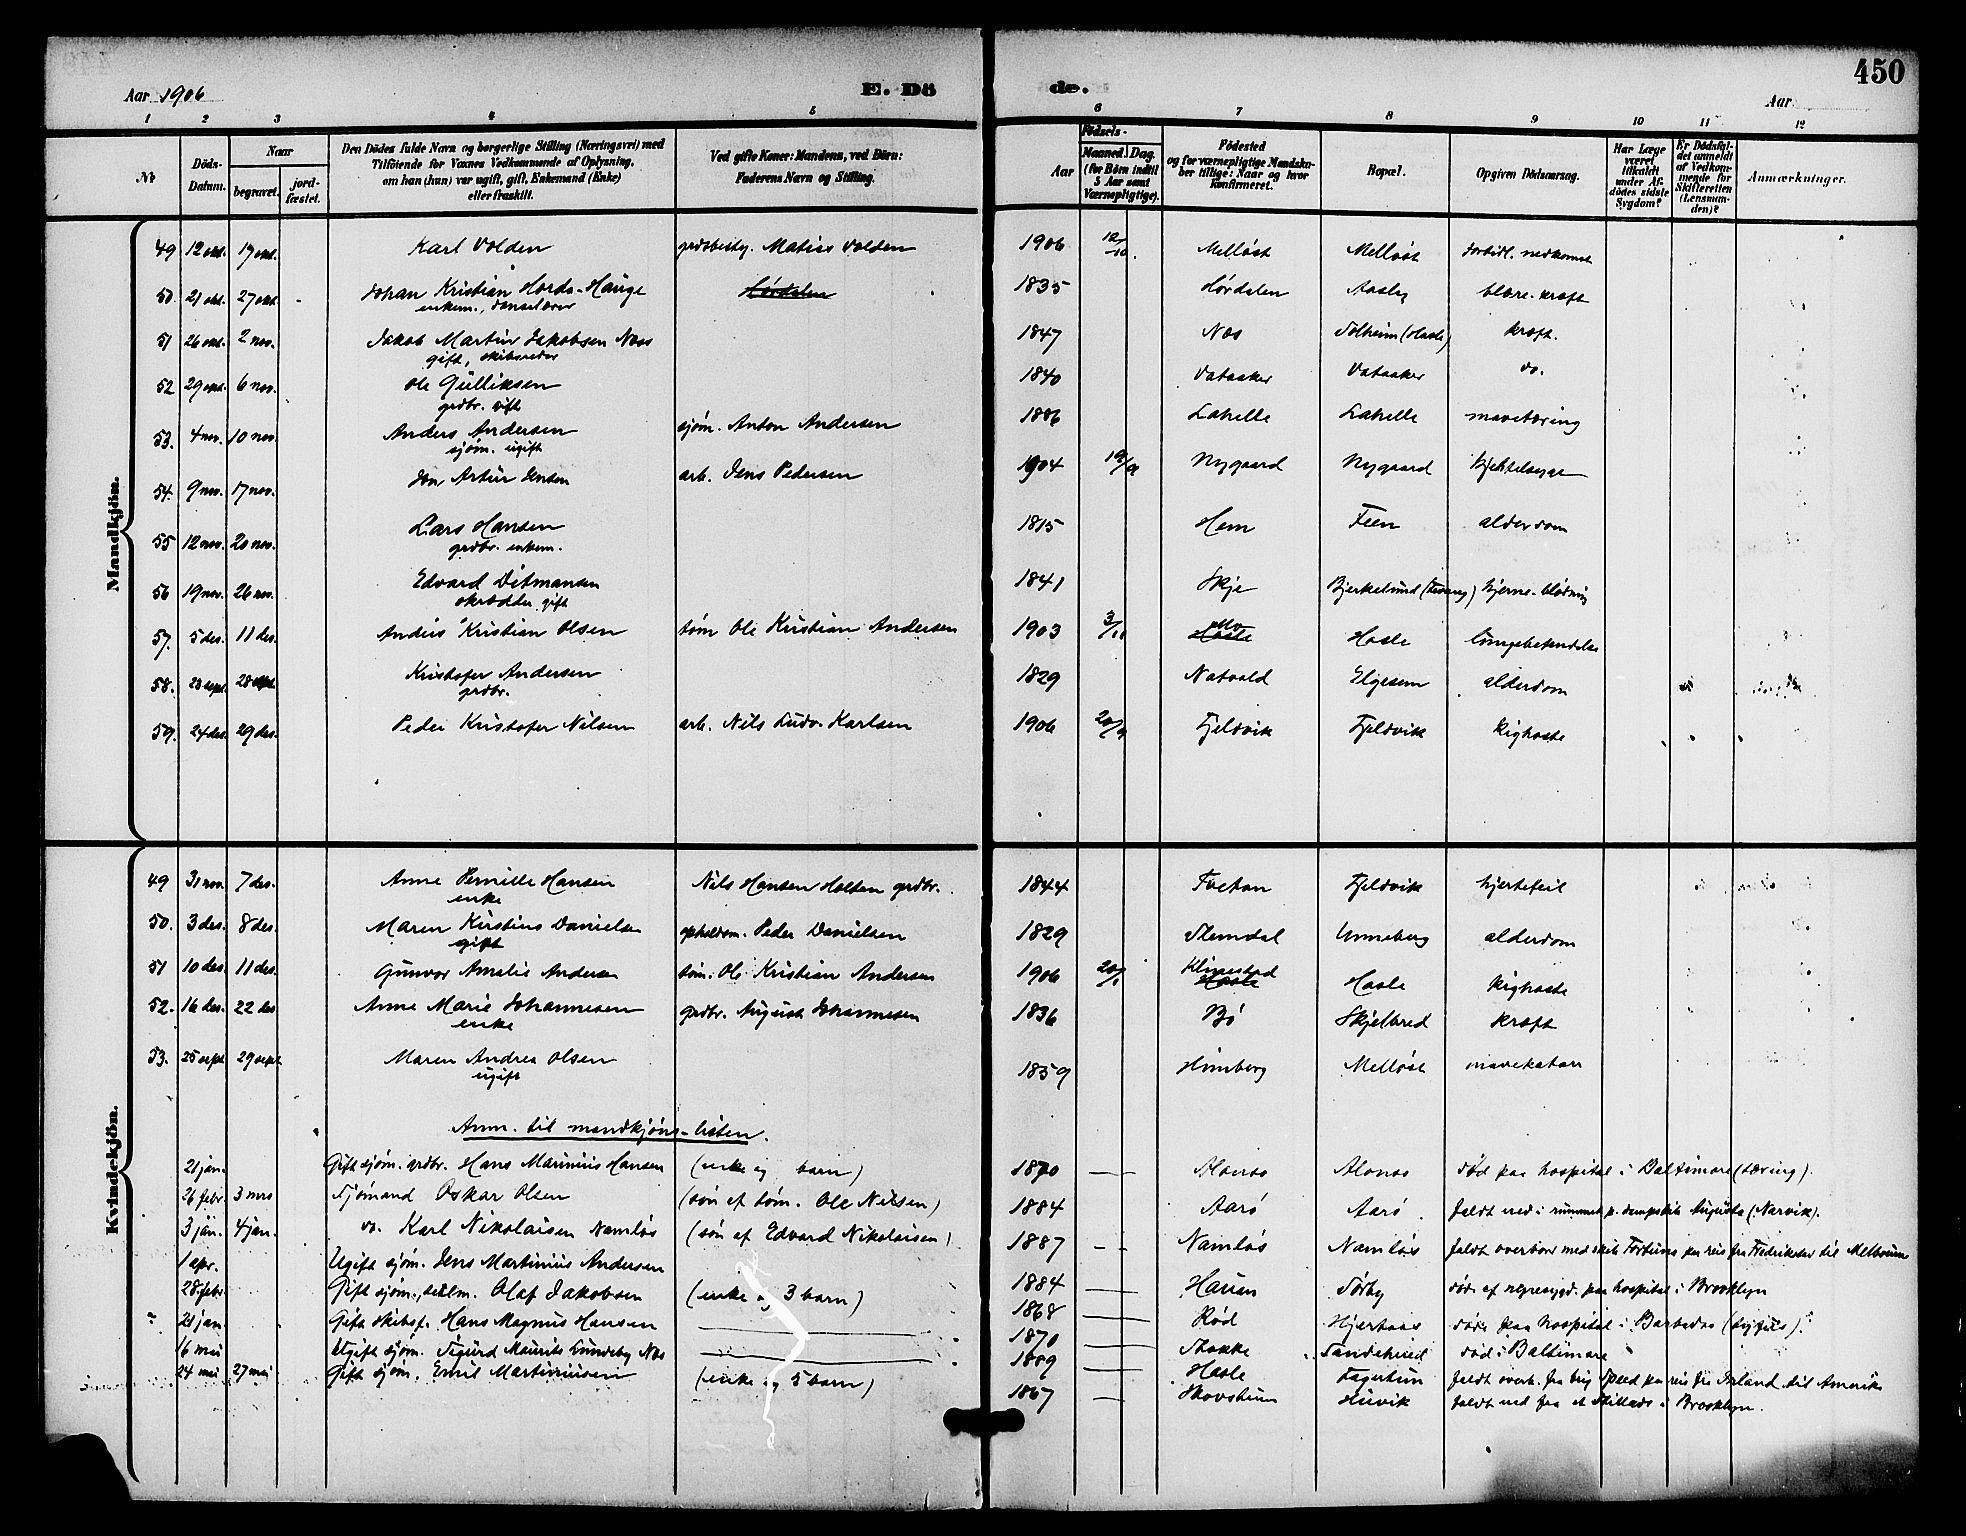 450
Aar 1906
E. Dö
de.
Aar
1 2 3 4 5 6 7 8 9 10 11 12
№
Döds-Datum.
Naar
begravet.
jord-fæstet.
Den Dödes fulde Navn og borgerlige Stilling (Næringsvei) med
Tilföiende for Voxnes Vedkommende af Oplysning,
om han (hun) var ugift, gift, Enkemand (Enke)
eller fraskilt.
Ved gifte Koner: Mandens, ved Börn:
Faderens Navn og Stilling.
Födsels-
Aar
Maaned. Dag.
(for Börn indtil 5 Aar samt Værnepligtige).
Födested
og for værnepligtige Mandska-
ber tillige: Naar og hvor
konfirmeret.
Bopæl.
Opgiven Dödsaarsag.
Har Læge været tilkaldt under Afdödes sidste Sygdom?
Er Dödsfaldet anmeldt af Vedkommende for Skifteretten (Lensmanden)?
Anmærkninger.
Mandkjön.
49 12 okt. 17 okt. Karl Volden grdbesty. Matias Volden 1906 12/10 Melløst Melløst forbidl. nedkomst
50. 21 okt. 27 okt. Johan Kristian Hords-Hauge Hørdalen 1835 Hørdalen Aasly blære-kræft
enkem., danselærer
51 26 okt. 2 nov. Jakob Martin Jakobsen Næs 1847 Næs Solheim (Hasle) kræft.
gift, skibsreder
52 29 okt. 6 nov. Ole Gulliksen 1840 Vataaker Vataaker do.
grdbr. gift
53. 4 nov. 10 nov. Anders Andersen sjøm. Anton Andersen 1886 Lahelle Lahelle mavetæring
sjøm. ugift
54. 9 nov. 17 nov. Jon Artur Jensen arb. Jens Pedersen 1904 Nygaard Nygaard kjertelsyge
55 12 nov. 20 nov. Lars Hansen 1815 Hem Feen alderdom
grdbr. enkem.
56 19 nov. 26 nov. Edvard Ditmansen 1841 Skje hjerne-blødning
skrædder, gift
57. 5 des. 11 des. Anders Kristian Olsen tøm Ole Kristian Andersen 1903 3/11 Mo Hasle Hasle lungebetændelse
58. 23 sept. 28 sept. Kristofer Andersen 1829 Natvald Elgesem alderdom
grdbr.
59. 24 des. 29 des. Peder Kristofer Nilsen arb. Nils Ludv. Karlsen 1906 20/9 Fjeldvik Fjeldvik kighoste
Kvindekjön.
49 31 nov. 7 des. Anne Pernille Hansen Nils Hansen Holten grdbr. 1844 Fletan Fjeldvik hjertefeil
enke
50. 3 des. 8 des. Maren Kirstine Danielsen opholdsm. Peder Danielsen 1829 Stemdal Unneberg alderdom
gift
51 10 des. 11 des. Gunvor Amalie Andersen tøm. Ole Kristian Andersen 1906 Klinestad Hasle Hasle kighoste
52. 16 des. 22 des Anne Marie Johannesen grdbr. August Johannesen 1836 Bø Skjelbred kræft
enke
53. 25 sept. 29 sept. Maren Andrea Olsen 1859 Hunberg Melløst mavekatar
ugift
Anm. til mandkjøns-listen.
21 jan. Gift sjøm. grdbr. Hans Marinius Hansen (enke og barn) 1870 Alonso død paa hospital i Baltimore (tæring).
26 febr. 3 mrs Sjømand Oskar Olsen (søn af tøm. Ole Nilsen) 1884 Aarø Aarø faldt ned i rummet p. dampskib Augusta (Narvik).
3 jan. 4 jan. do. Karl Nikolaisen Namløs (søn af Edvard Nikolaisen) 1887 Namløs Namløs faldt overbord med skib Fortuna paa reis fra Fredrikstad til Melbourne
1 apr. Ugift sjøm. Jens Martinius Andersen 1884 Hauan Sørby død af nyresygd. paa hospital i Brooklyn
28. febr. Gift sjøm., seilm. Olaf Jakobsen (enke og 3 barn) 1868 Rød Hjertaas døde paa hospital i Barbados (tyfus).
21 jan. Gift skibsf. Hans Magnus Hansen 1870 Stokke Sandefjord død i Baltimore
16 mai Ugift sjøm. Sigurd Maurits Lundeby Næs 1889 Hasle Fagertun faldt overb. fra brig Speed paa reis fra Irland til Amerika
24 mai 27 mai Gift sjøm. Emil Martiniusen (enke og 5 barn) 1867 Skovstuen Husvik faldt ned fra et stillads i Brooklyn.